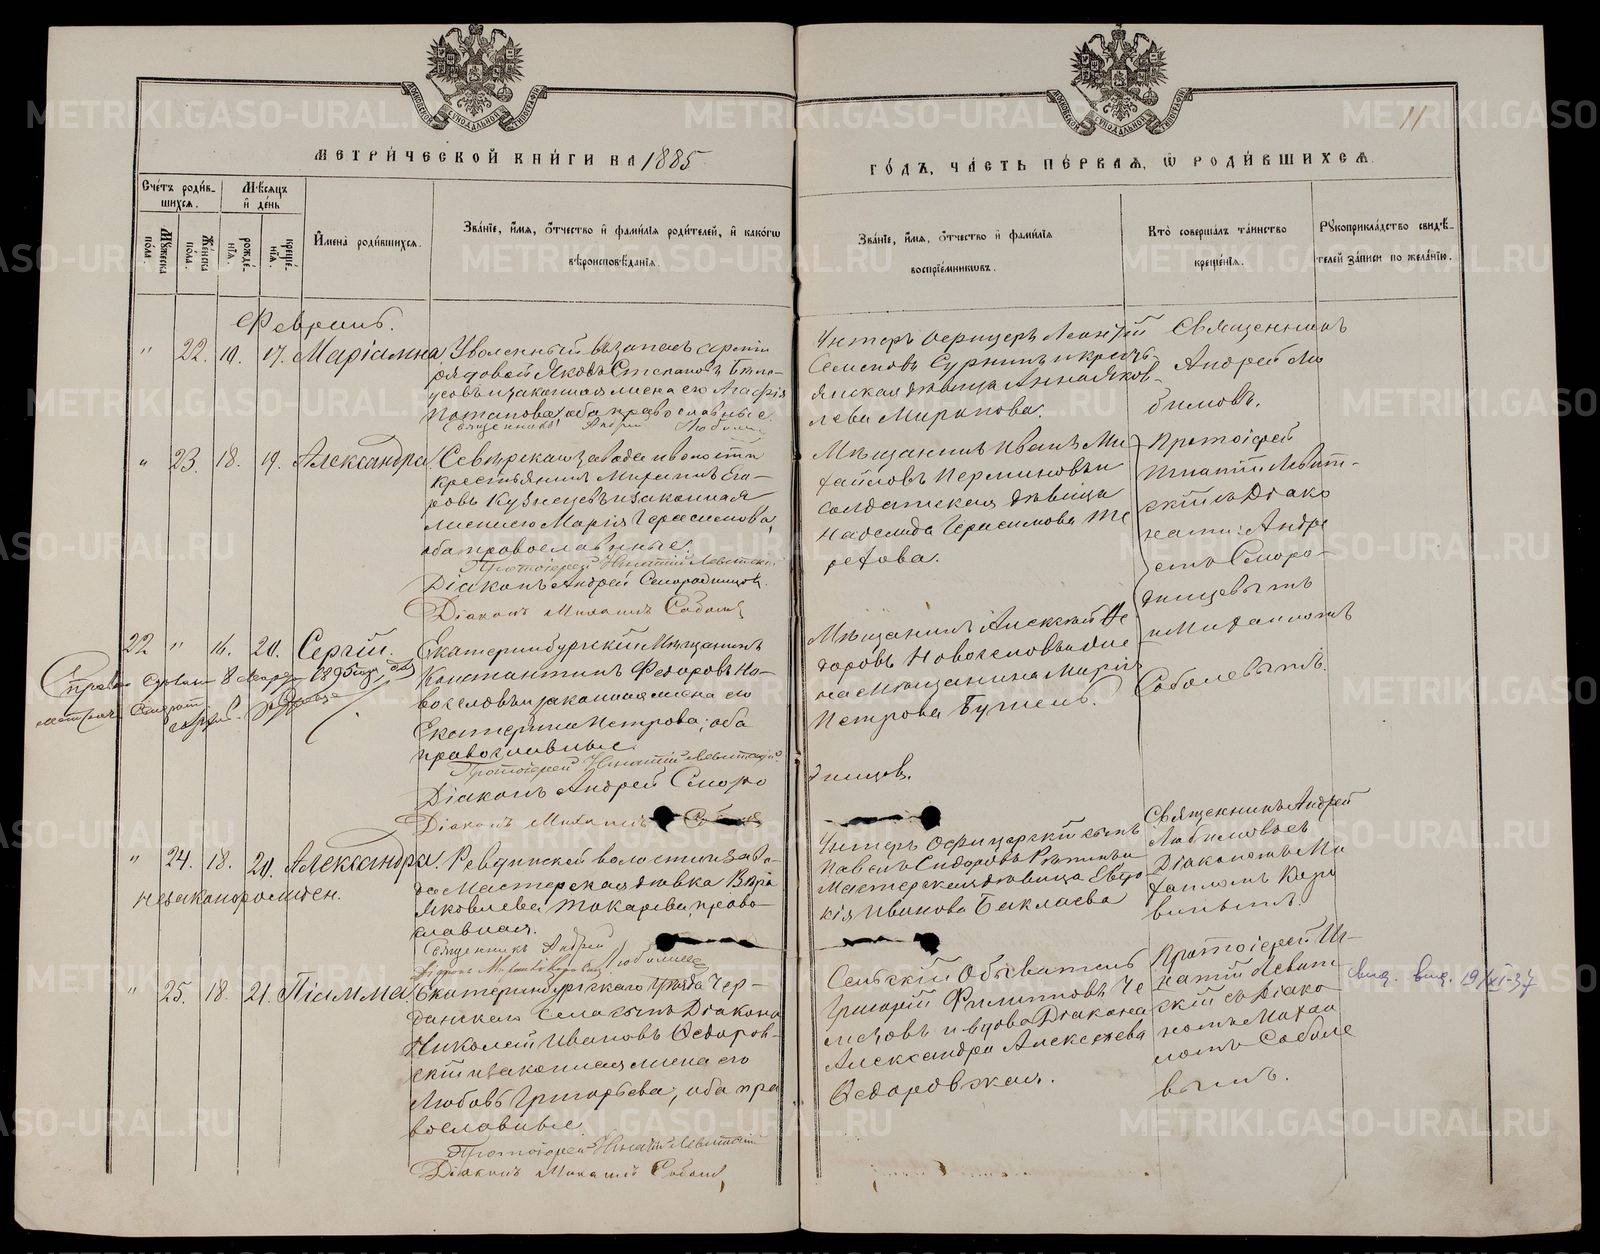 МЕТРИ́ЧЕСКОЙ КНИ́ГИ НА 1885
ГО́ДЪ, ЧА́СТЬ ПЕ́РВАЯ, Ѡ РОДИ́ВШИХСЯ.
11
Сче́тъ роди́в-
шихся.
Му́жеска по́ла.
Же́нска по́ла.
Мѣ́сяцъ
и де́нь
рожде́нія.
креще́нія.
Имена̀ роди́вшихся.
Зва́ніе, и́мя, о́тчество и фами́лія роди́телей, и како́гѡ
вѣроисповѣ́данія.
Зва́ніе, и́мя, о́тчество и фами́лія
воспріе́мникѡвъ.
Кто̀ соверша́лъ та́инство
креще́нія.
Рукоприкла́дство свидѣ́-
телей за́писи по жела́нію.
Февраль.
" 22. 10. 17. Маріамна
Уволенный въ запасъ арміи
рядовой Яковъ Степановъ
и законная жена его Агафія
Потапова, оба православные.
Священникъ Андрей
Унтеръ офицеръ Леонтій
Семеновъ и кресть-
янская дѣвица Анна Яков-
лева Миронова.
Священникъ
Андрей Лю
бимовъ.
" 23. 18. 19. Александра
Сѣверскаго завода и волости
крестьянинъ Миронъ Его-
ровъ Кузнецовъ и законная
жена его Марія Герасимова,
оба православные.
Протоіерей Игнатій Левитскій
Діаконъ Андрей Смородинцовъ
Діаконъ Михаилъ Соболевъ
Мѣщанинъ Иванъ Ми
хайловъ Перминовъ и
солдатская дѣвица
Надежда Герасимова Те
рехова.
Протоіерей
Игнатій Левит-
скій съ Діако
нами: Андре
емъ Сморо-
динцевымъ
и Михаиломъ
Соболевымъ.
22 " 16. 20. Сергій.
Екатеринбургскій Мѣщанинъ
Константинъ Федоровъ Но-
воселовъ и законная жена его
Екатерина Петрова; оба
православные.
Протоіерей Игнатій Левитскій
Діаконъ Андрей Сморо
динцовъ.
Діаконъ Михаилъ
Мѣщанинъ Алексѣй Фе
доровъ Новоселовъ и
на Мѣщанина Марія
Петрова
8 Марта 1895 года
" 24. 18. 20. Александра.
незаконорожден.
Ревдинской волости и заво-
да Мастерская дѣвка Вѣра
Яковлева Токарева, право-
славная.
Священникъ Андрей
Любимовъ
Унтеръ Офицерскій сынъ
Павелъ Сидоровъ и
Мастерская дѣвица Евдо
кія Иванова Баклаева
Священникъ Андрей
Любимовъ съ
Діакономъ Ми
хаиломъ
" 25. 18. 21. Піамма
Екатеринбургскаго Уѣзда Чер-
данскаго Села сынъ Діакона
Николай Ивановъ Ѳедоров-
скій и законная жена его
Любовь Григорьева; оба пра
вославные.
Протоіерей Игнатій Левитскій
Діаконъ Михаилъ Соболевъ
Сельскій Обыватель
Григорій Филипповъ Че
и вдова Діакона
Александра Алексѣева
Ѳедоровская.
Протоіерей Иг-
натій Левит
скій съ Діако
номъ Михаи
ломъ Соболе
вымъ.
METRIKI.GASO-URAL.RU